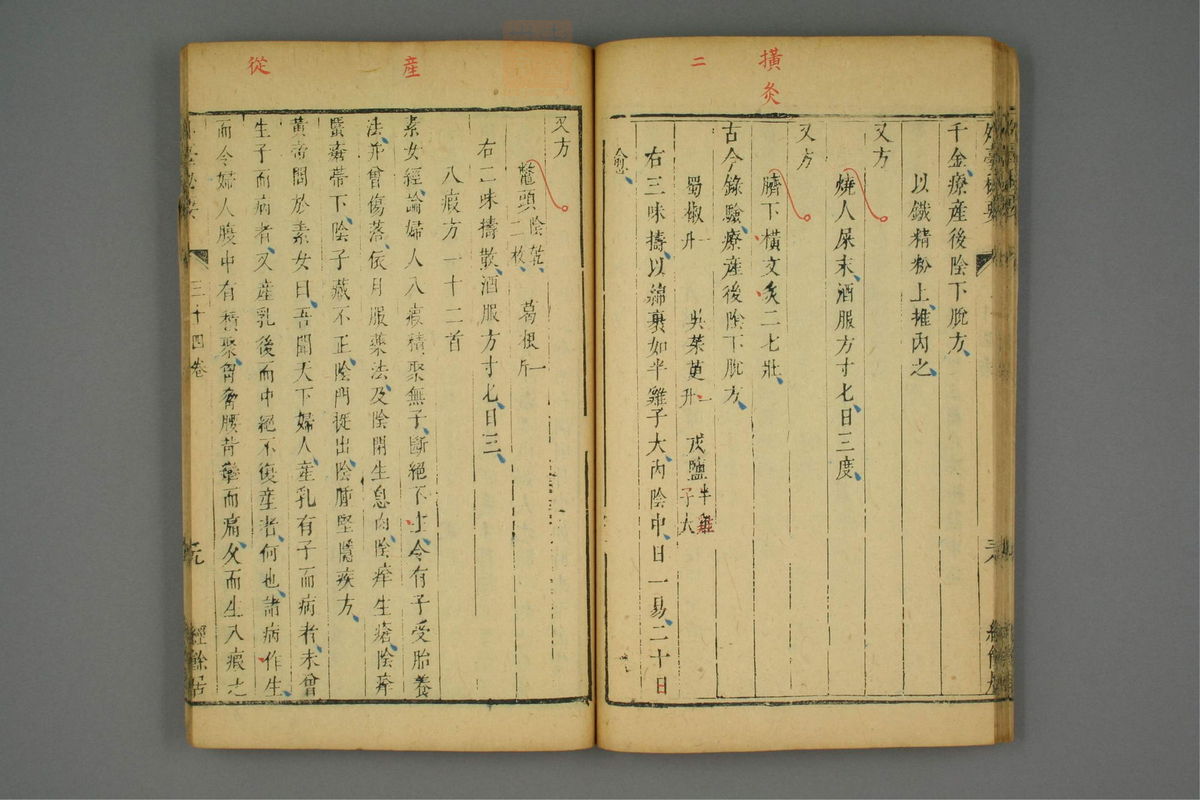 橫灸
二
千金療產後陰下脫方
以鐵精粉上推內之
又方
燒人屎末酒服方寸匕日三度
又方
臍下橫文炙二七壯
古今錄驗療產後陰下脫方
蜀椒一升 吳茱萸一升 戎鹽半雞子大
右三味擣以綿裹如半雞子大內陰中日一易二十日
愈
產
從
又方
鱉頭陰乾二枚 葛根一斤
右二味擣散酒服方寸匕日三
八瘕方一十二首
素女經論婦人八瘕積聚無子斷絕不上令有子受胎養
法并曾傷落依月服藥法及陰閉生息肉陰痒生瘡陰痒
䘌蝕帶下陰子藏不正陰門挺出陰腫堅隱疾方
黃帝問於素女曰吾聞天下婦人產乳有子而病者未曾
生子而病者又產乳後而中絕不復產者何也諸病作生
而令婦人腹中有積聚胸脅腰背攣而痛久而生八瘕之
三十四卷
經餘居